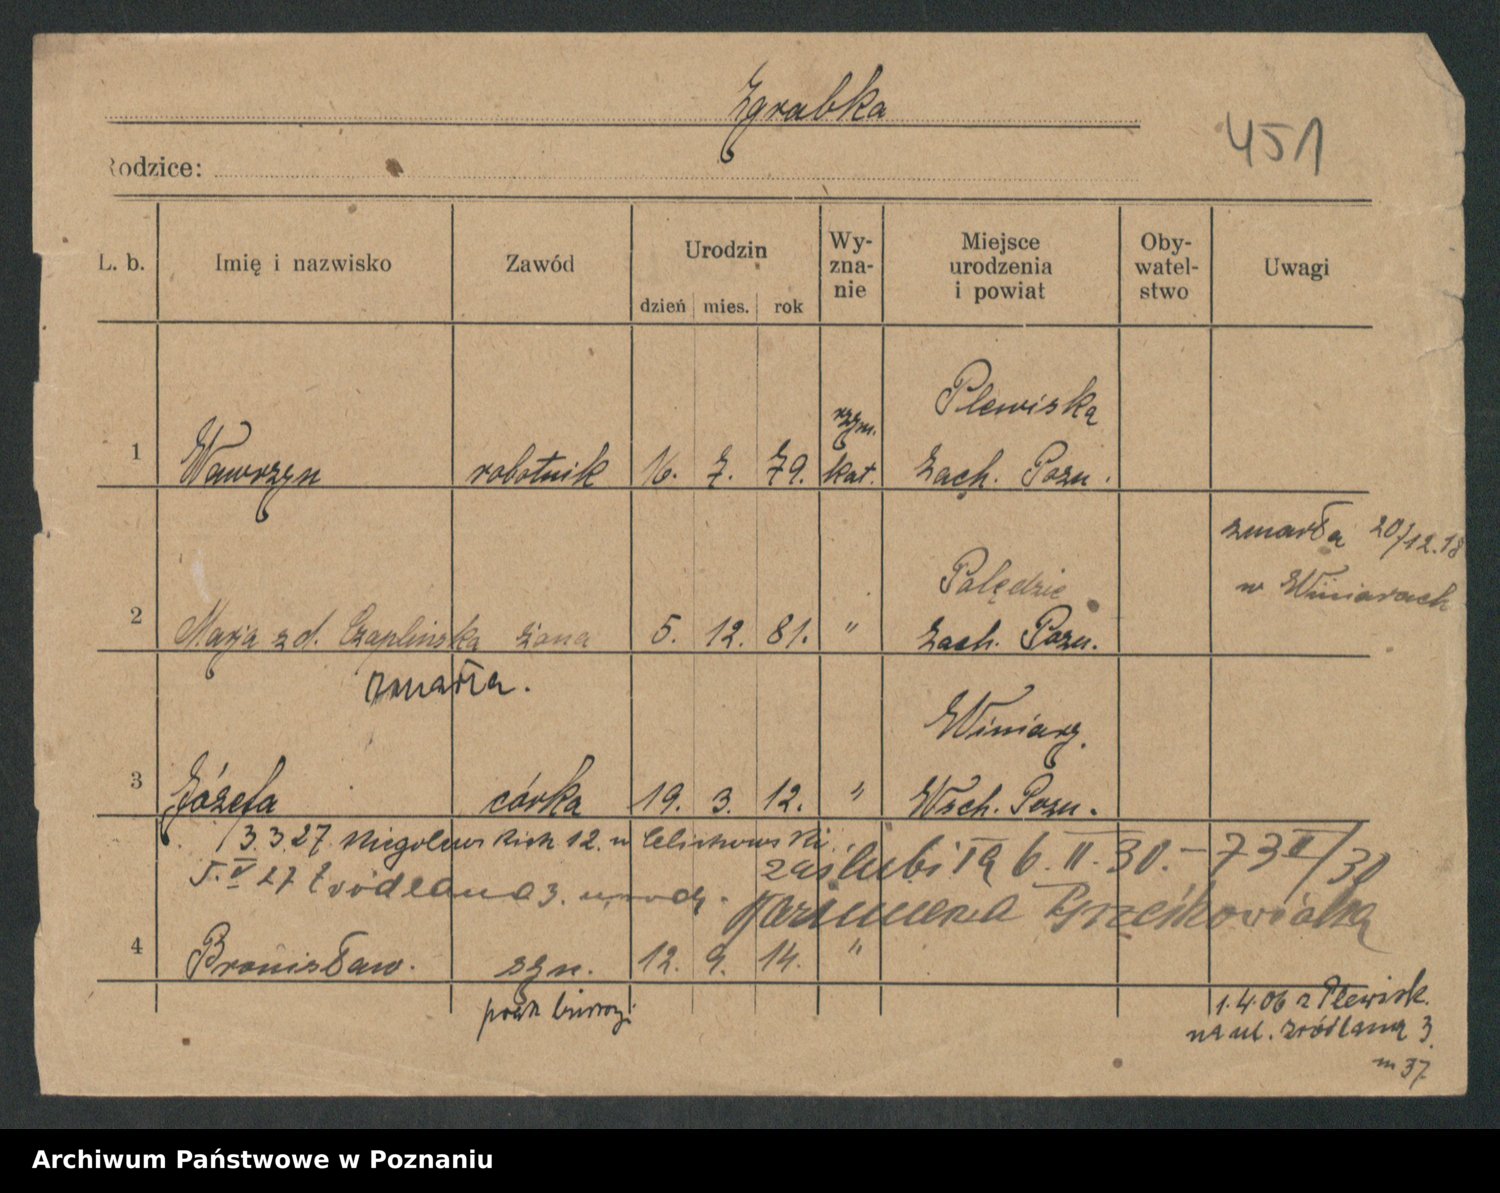 Zgrabka
451
Rodzice:
L. b. Imię i nazwisko Zawód Urodzin dzień mies. rok Wy-zna-nie Miejsce urodzenia i powiat Oby-watel-stwo Uwagi
1 Wawrzyn robotnik 16. 7. 79. rzym. kat. Plewiska Zach. Pozn.
zmarła 20/12.18
w Winiarach
2 Marja zd. Czaplińska żona 5. 12. 81. " Palędzie Zach. Pozn.
zmarła.
3 Józefa córka 19. 3. 12. " Winiary. Wsch. Pozn.
3.3.27 Niegolewskich 12. u Cichowski
zaślubiła 6.II.30. – 73 II/30
5.V 27 Źródlana 3. u
Kazimierza Grześkowiaka
4 Bronisław. syn. 12. 9. 14. "
1.4.06 z Plewisk.
na ul. Źródlaną 3.
m 37.
Archiwum Państwowe w Poznaniu